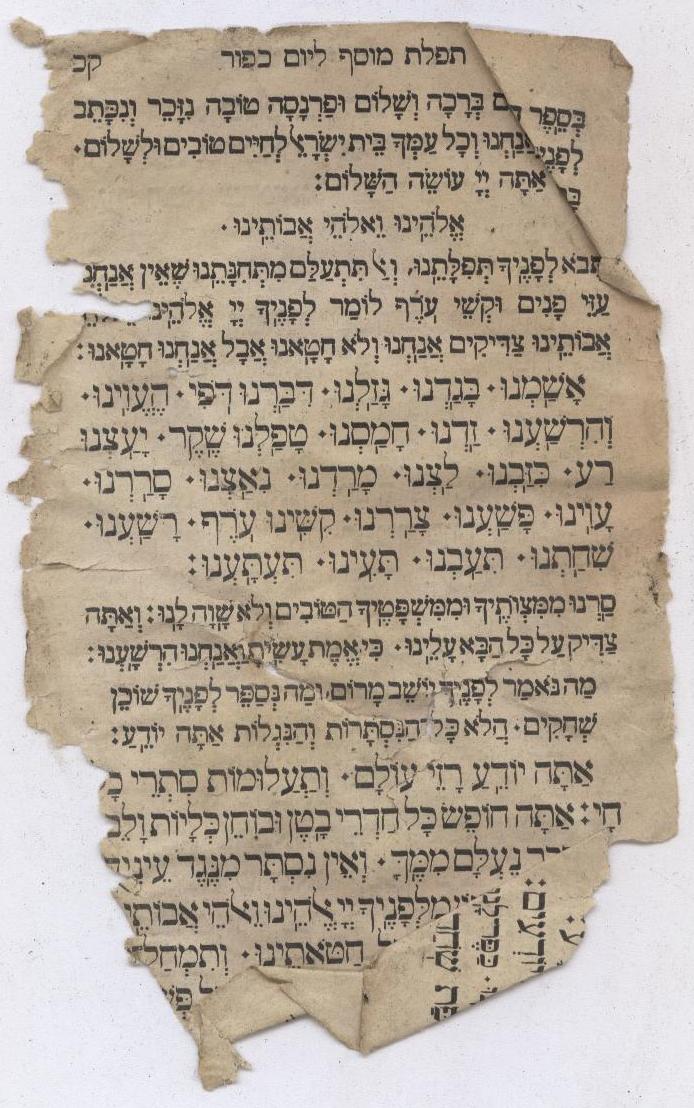 תפלת מוסף ליום כפור קכ
בְּסֵפֶר בְּרָכָה וְשָׁלוֹם וּפַרְנָסָה טוֹבָה נִזָּכֵר וְנִכָּתֵב
אֲנַחְנוּ וְכָל עַמְּךָ בֵּית יִשְׂרָאֵל לְחַיִּים טוֹבִים וּלְשָׁלוֹם׃
אַתָּה יְיָ עוֹשֵׂה הַשָּׁלוֹם׃
אֱלֹהֵינוּ וֵאלֹהֵי אֲבוֹתֵינוּ ·
תבא לְפָנֶיךָ תְּפִלָּתֵנוּ, וְאַל תִּתְעַלַּם מִתְּחִנָּתֵנוּ שֶׁאֵין אֲנַחְנוּ
עַזֵּי פָנִים וּקְשֵׁי עֹרֶף לוֹמַר לְפָנֶיךָ יְיָ אֱלֹהֵינוּ
אֲבוֹתֵינוּ צַדִּיקִים אֲנַחְנוּ וְלֹא חָטָאנוּ אֲבָל אֲנַחְנוּ חָטָאנוּ׃
אָשַׁמְנוּ · בָּגַדְנוּ · גָּזַלְנוּ · דִּבַּרְנוּ דֹפִי · הֶעֱוִינוּ ·
וְהִרְשַׁעְנוּ · זַדְנוּ · חָמַסְנוּ · טָפַלְנוּ שֶׁקֶר · יָעַצְנוּ
רַע · כִּזַּבְנוּ · לַצְנוּ · מָרַדְנוּ · נִאַצְנוּ · סָרַרְנוּ ·
עָוִינוּ · פָּשַׁעְנוּ · צָרַרְנוּ · קִשִּׁינוּ עֹרֶף · רָשַׁעְנוּ ·
שִׁחַתְנוּ · תִּעַבְנוּ · תָּעִינוּ · תִּעְתָּעְנוּ׃
סַרְנוּ מִמִּצְוֹתֶיךָ וּמִמִּשְׁפָּטֶיךָ הַטּוֹבִים וְלֹא שָׁוָה לָנוּ׃ וְאַתָּה
צַדִּיק עַל כָּל הַבָּא עָלֵינוּ · כִּי אֱמֶת עָשִׂיתָ וַאֲנַחְנוּ הִרְשָׁעְנוּ׃
מַה נֹּאמַר לְפָנֶיךָ יוֹשֵׁב מָרוֹם, וּמַה נְּסַפֵּר לְפָנֶיךָ שׁוֹכֵן
שְׁחָקִים · הֲלֹא כָּל הַנִּסְתָּרוֹת וְהַנִּגְלוֹת אַתָּה יוֹדֵעַ׃
אַתָּה יוֹדֵעַ רָזֵי עוֹלָם · וְתַעֲלוּמוֹת סִתְרֵי
חָי׃ אַתָּה חוֹפֵשׂ כָּל חַדְרֵי בָטֶן וּבוֹחֵן כְּלָיוֹת וָלֵב
נֶעְלָם מִמֶּךָּ · וְאֵין נִסְתָּר מִנֶּגֶד עֵינֶיךָ
מִלְּפָנֶיךָ יְיָ אֱלֹהֵינוּ וֵאלֹהֵי אֲבוֹתֵי
חַטֹּאתֵינוּ · וְתִמְחַל